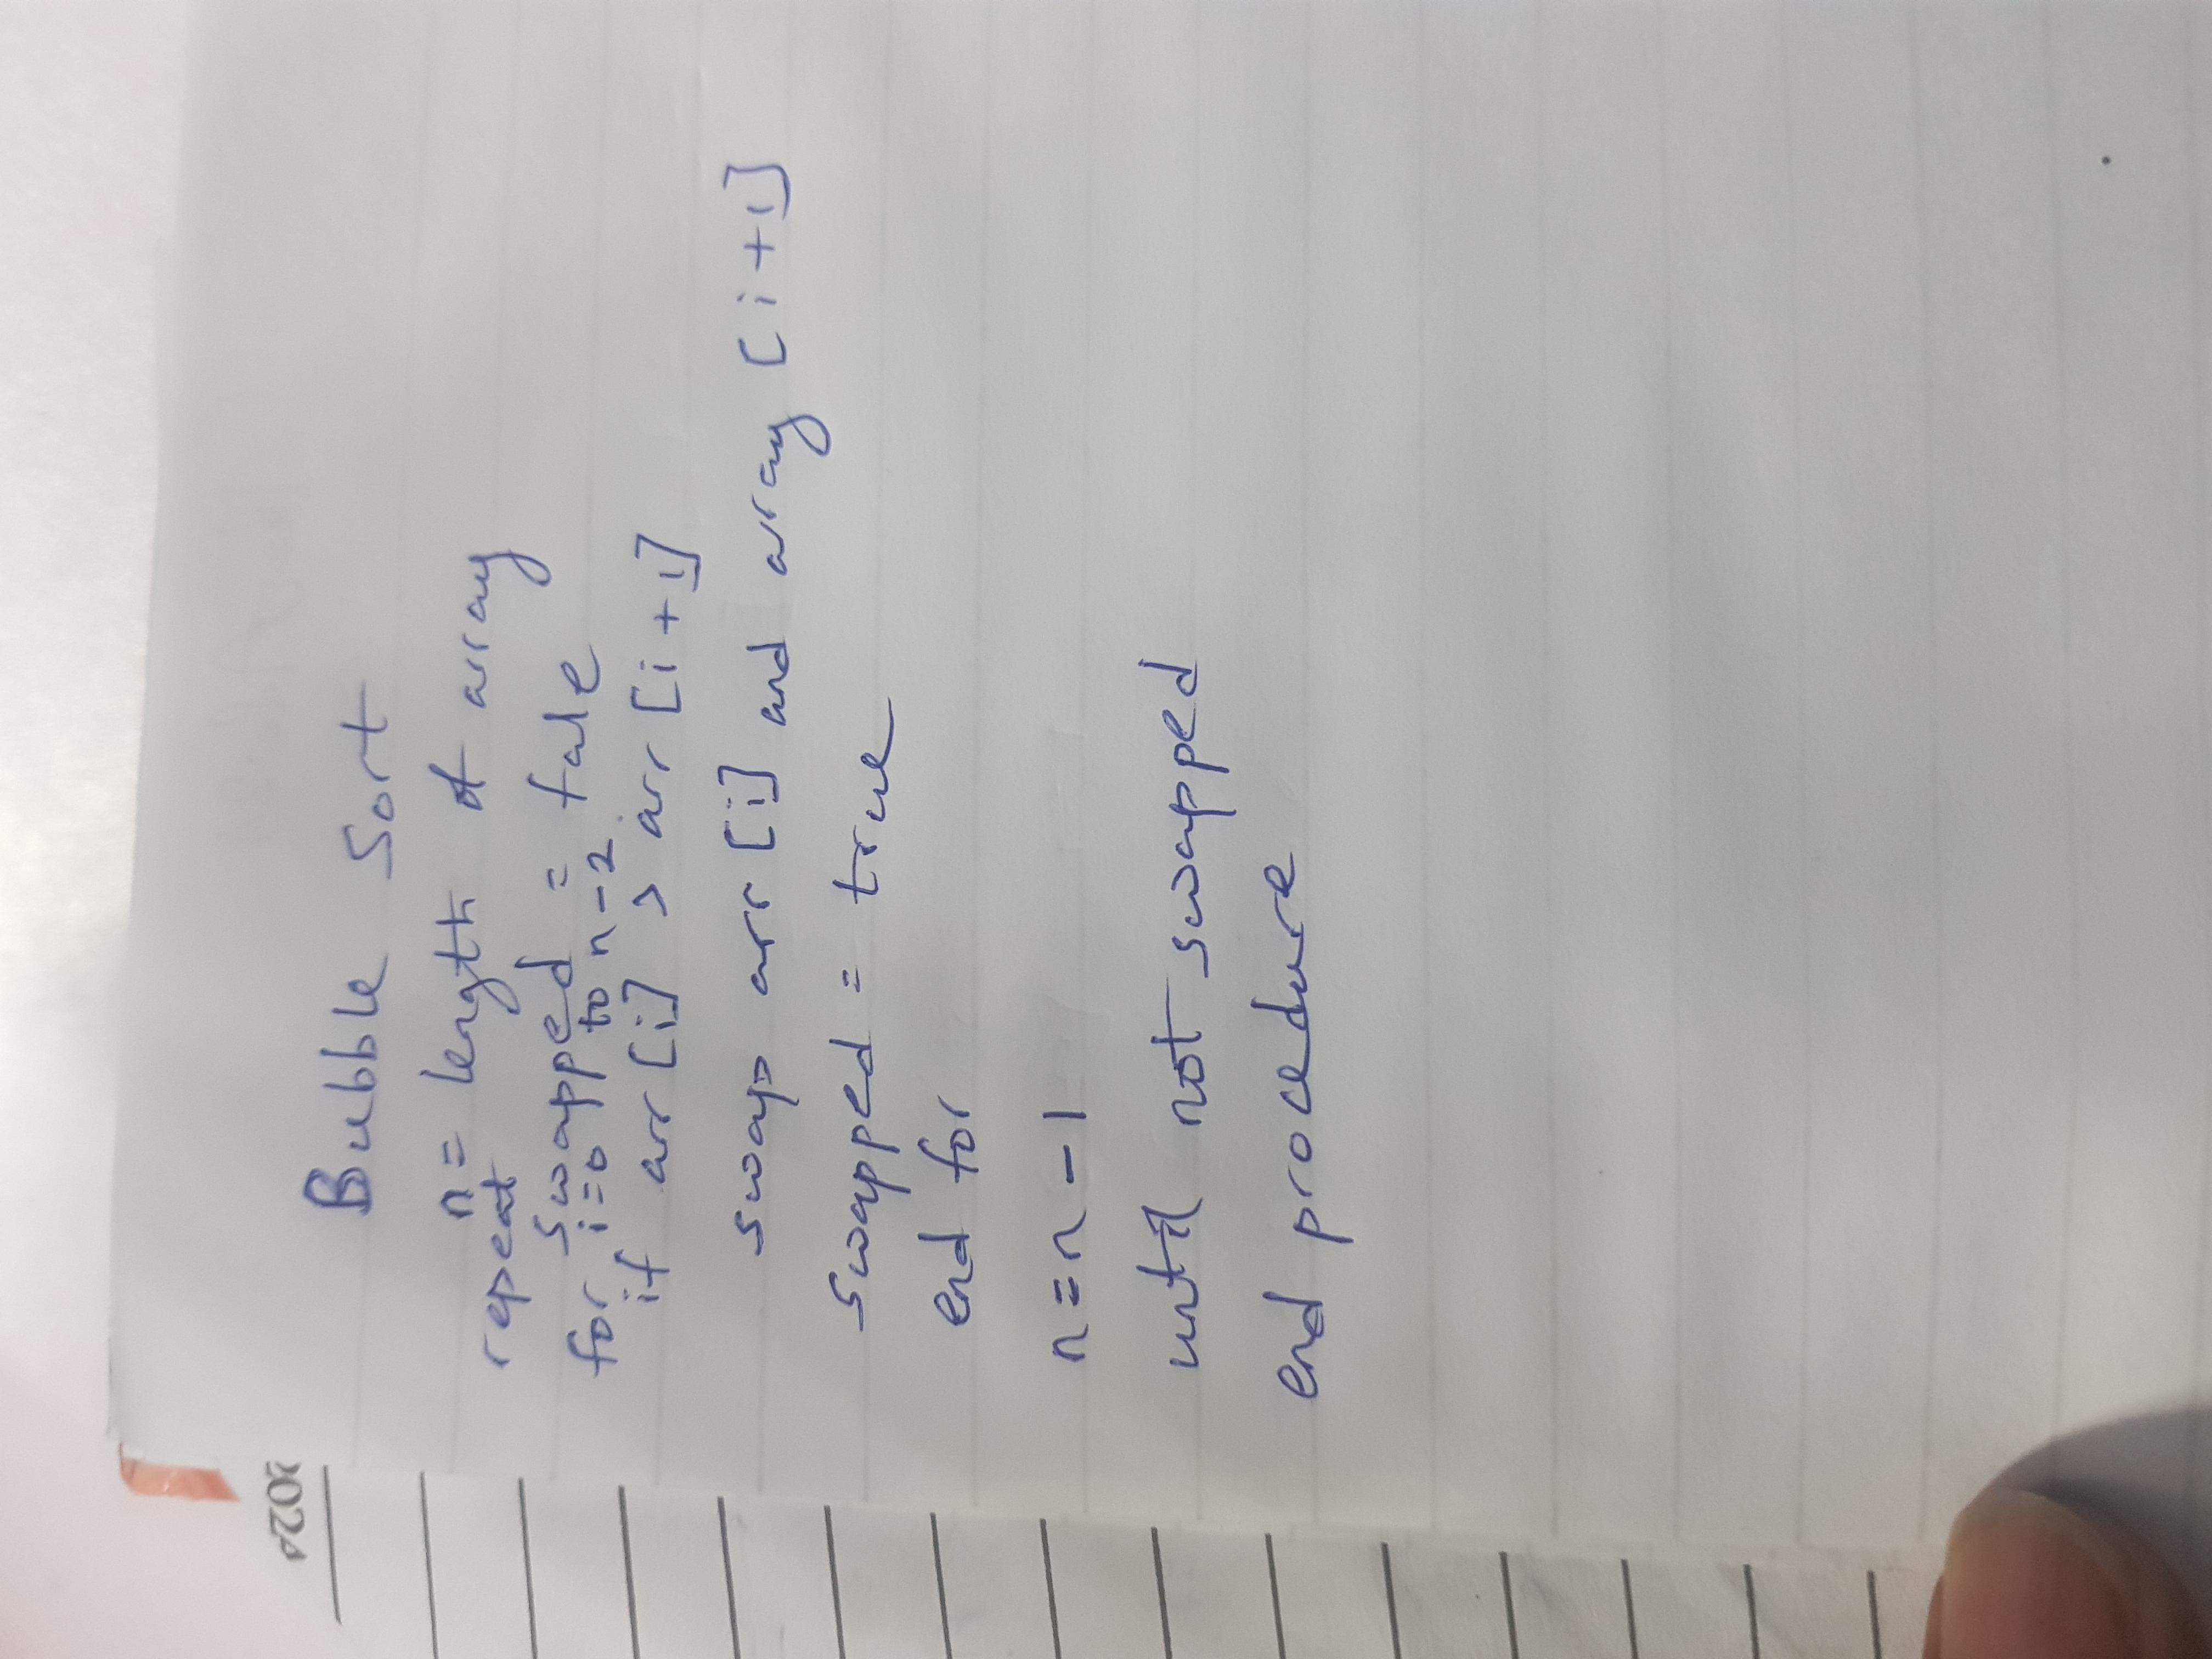 2024
Bubble Sort
n = length of array
repeat
swapped = fale
for i=0 to n-2
if arr [i] > arr [i+1]
swap arr [i] and array [i+1]
swapped = true
end for
n=n-1
until not swapped
end procedure